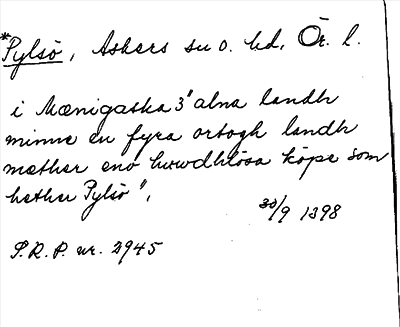 *Pylsö, Askers sn o. hd, Ör. l.
i Mænigaska 3" alna landh
minne en fyra ortogh landh
mæther eno huwdhlösa köpe som
hether Pylsö",
30/9 1398
S.R.P. nr. 2945